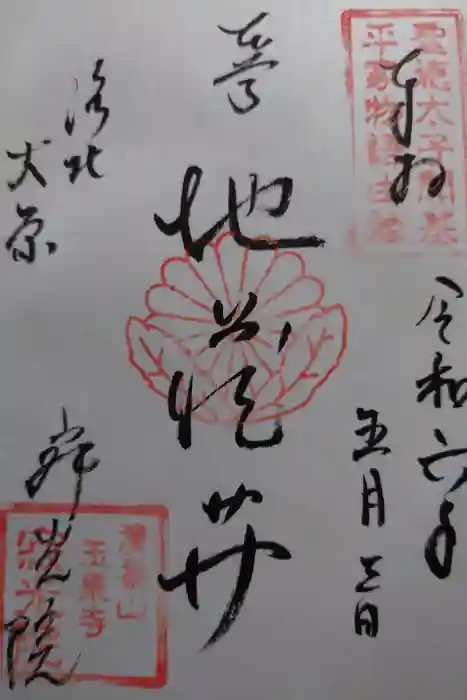 聖徳太子開基
平家物語由緒
奉拝
令和六年
五月三日
本尊
地蔵𦬇
洛北
大原
寂光院
清香山
玉泉寺
寂光院